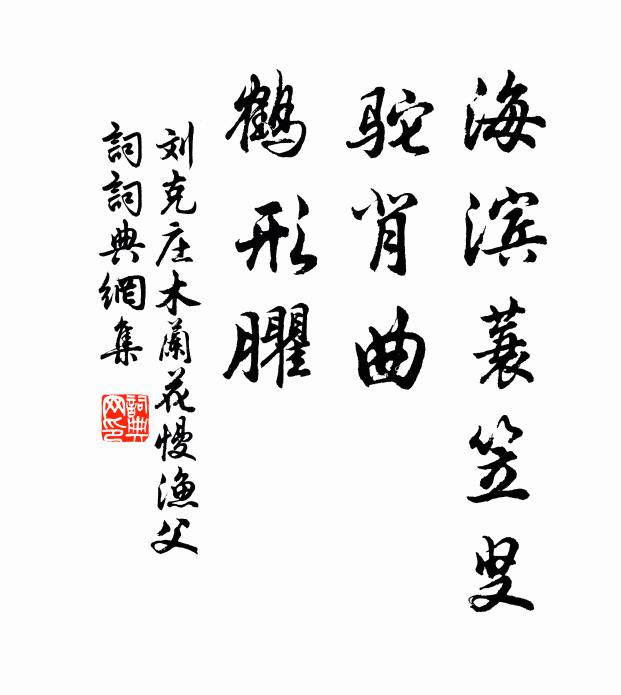 海滨蓑笠叟
駝背曲
鶴形臞
刘克庄木蘭花慢漁父
詞詞典網集
詞典
网印